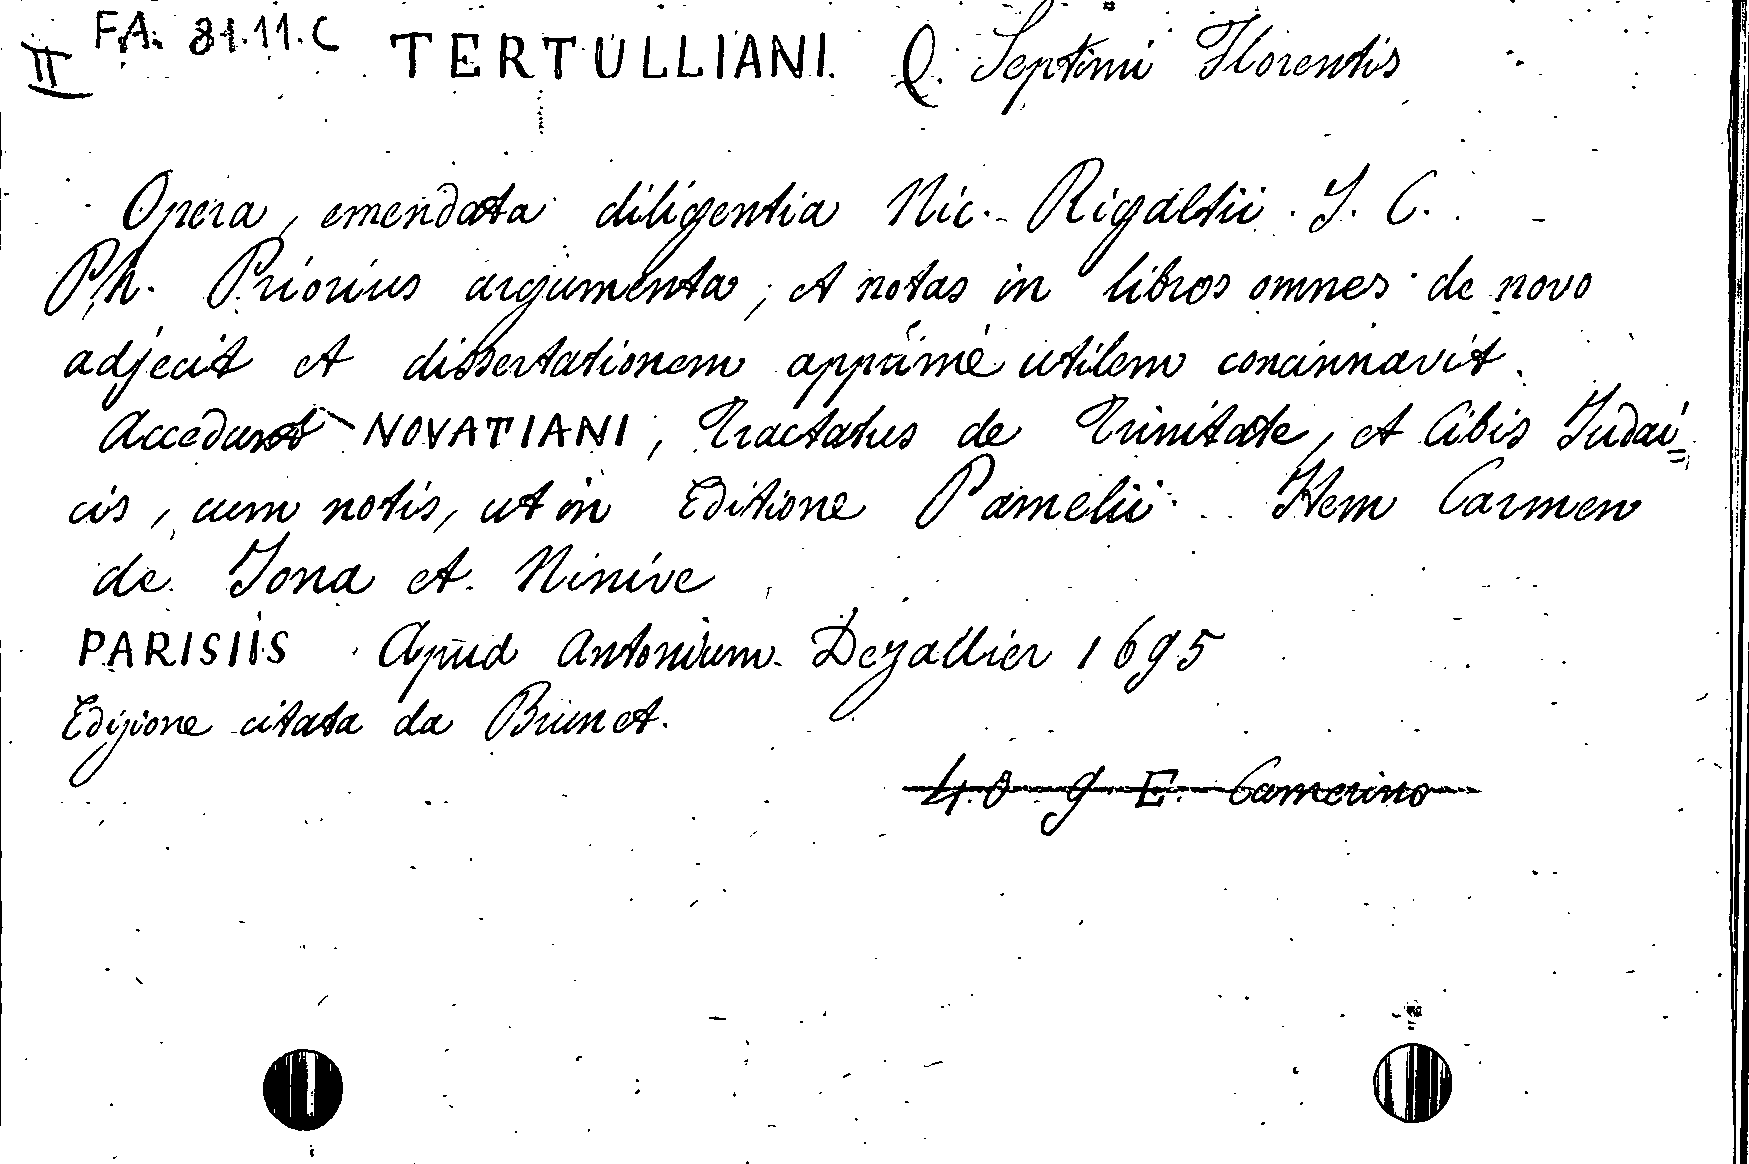 II FA. 31.11.C TERTULLIANI. Q. Septimi Florentis
Opera, emendata diligentia Nic. Rigaltii. J. C.
Ph. Priorius argumenta, et notas in libros omnes de novo
adjecit et dissertationem apprimé utilem concinnavit.
Accedunt NOVATIANI, Tractatus de Trinitate, et Cibis Judai=
cis, cum notis, ut in Editione Pamelii. Item Carmen
de Jona et Ninive
PARISIIS Apud Antonium Dezallier 1695
Edizione citata da Brunet.
4. 8 g. E. Camerino